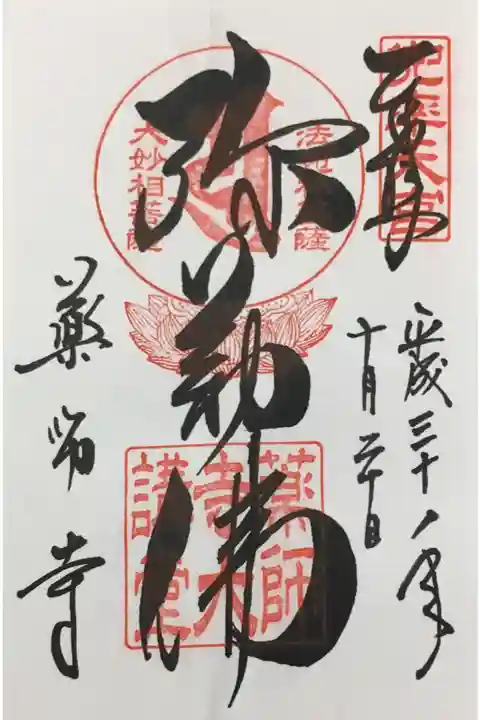 奉拝
平成三十年
十月二十日
法苑林菩薩
大妙相菩薩
弥勒佛
薬師寺大講堂
薬師寺